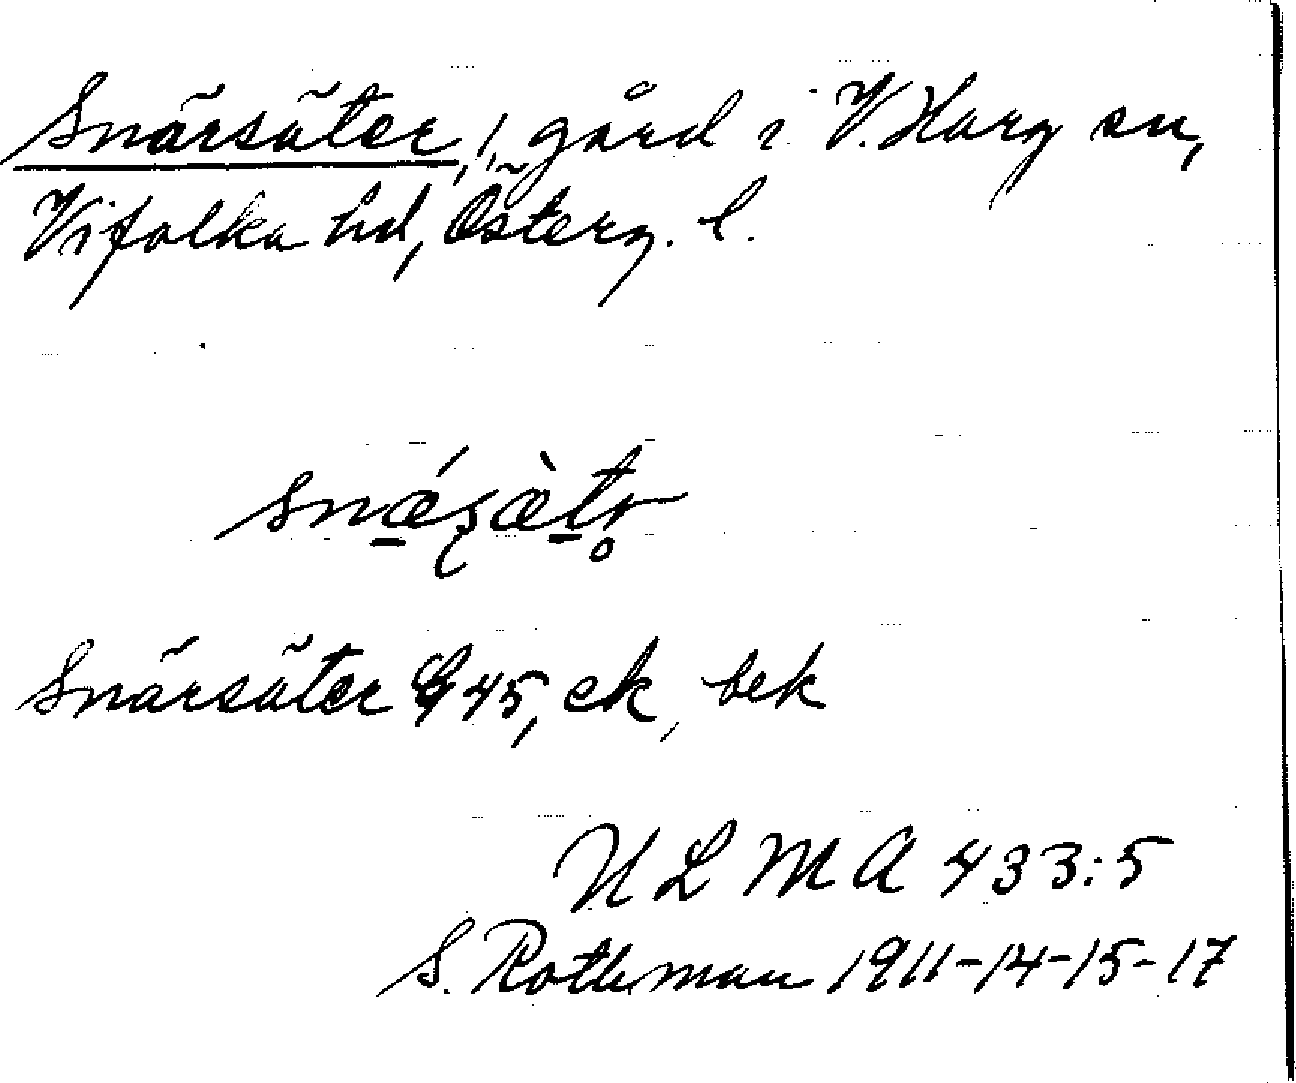 Snärsäter, gård i V. Harg sn,
Vifolka hd, Österg. l.
snǽʂæ̀tr̥
Snärsäter G 45, ek, bek
ULMA 433:5
S. Rothman 1911-14-15-17